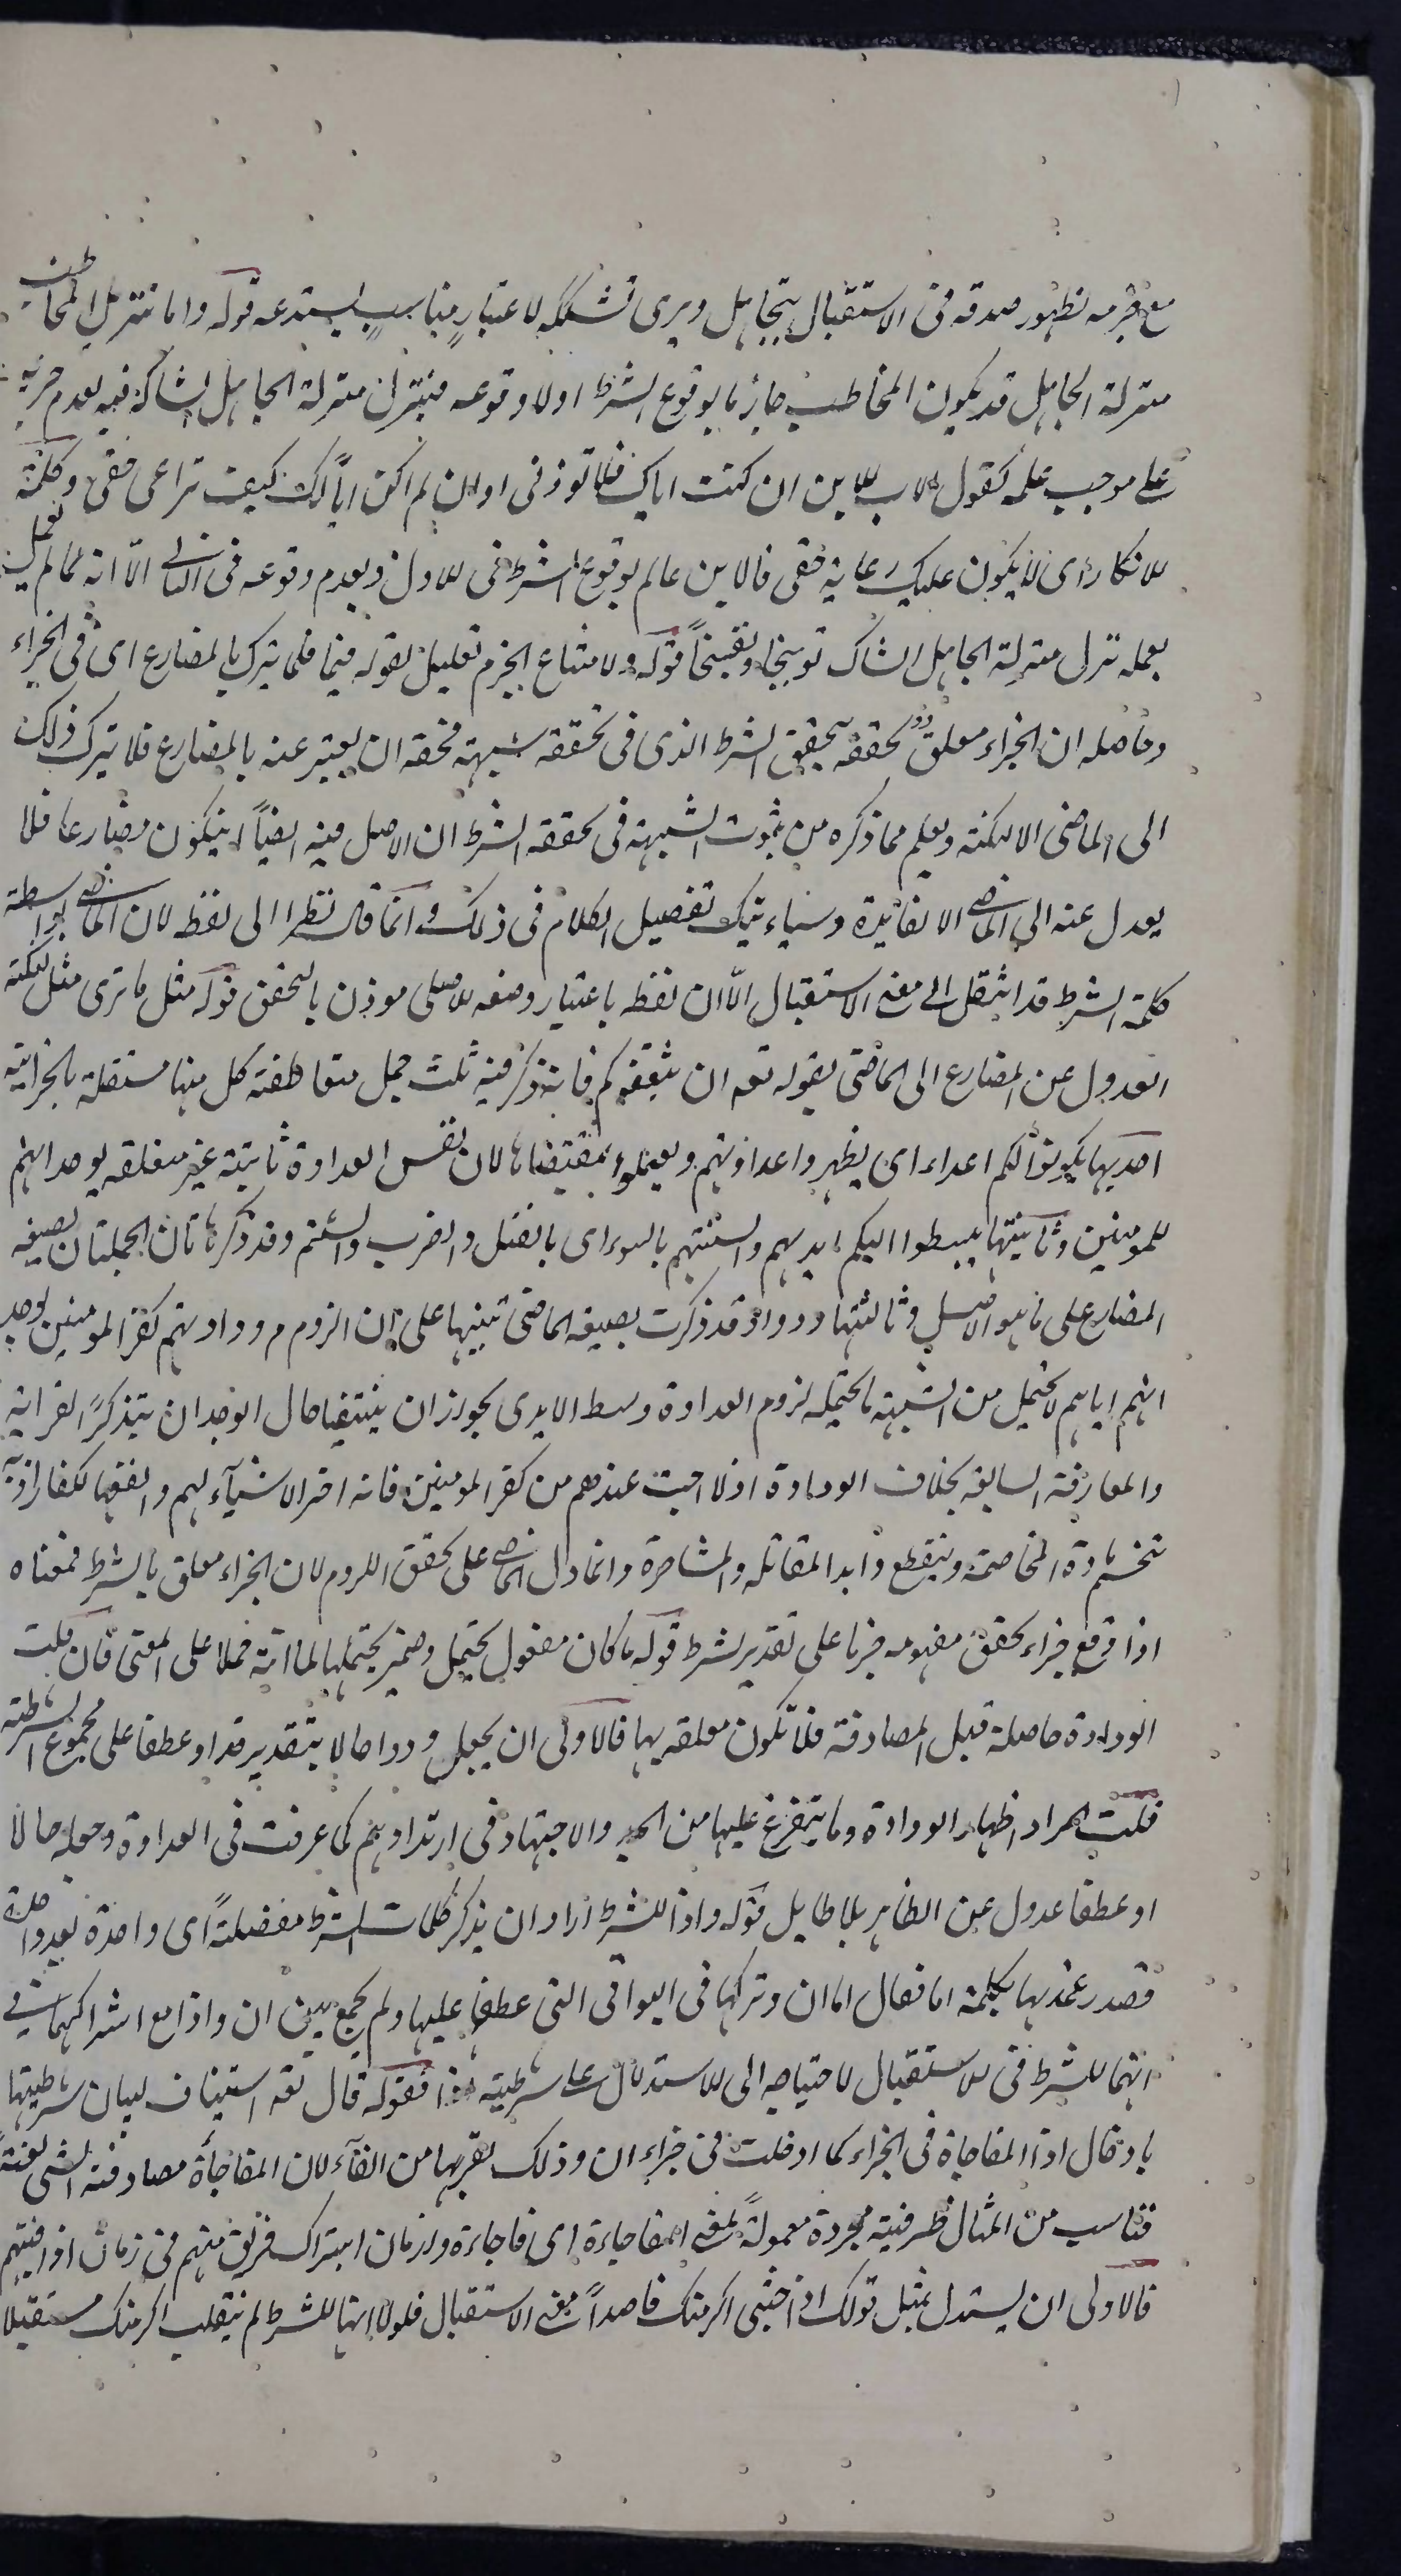 مع جزمه بظهور صدقه فى الاستقبال يتجاهل ويرى تشككه لاعتبار مناسب يستدعيه قوله واما تنزيل المخاطب
منزلة الجاهل قد يكون المخاطب جازما بوقوع الشرط اولا وقوعه فينزل منزلة الجاهل الشاك فيه لعدم جريه
على موجب علمه كقول الاب للابن ان كنت اباك فلا توذنى او ان لم اكن اباً لك كيف تراعى حقى وكلمة
للانكار اى لا يكون عليك رعاية حقى فالابن عالم بوقوع الشرط فى الاول وبعدم وقوعه فى الثانى الّا انه لما لم يعمل
بعلمه نزل منزلة الجاهل الشاك توبيخا وتقبيحاً قوله ولامتناع الجزم تعليل لقوله فيما قلما يترك بالمضارع اى فى الجزاء
وحاصله ان الجزاء معلق تحققه بتحقق الشرط الذى فى تحققه شبهة فحقه ان يعبر عنه بالمضارع فلا يترك ذلك
الى الماضى الا لنكتة ويعلم مما ذكره من ثبوت الشبهة فى تحققه الشرط ان الاصل فيه ايضاً ان يكون مضارعا فلا
يعدل عنه الى الماضى الا لفائدة وسياءتيك تفصيل الكلام فى ذلك وانما قال نظرا الى لفظه لان الماضى بواسطة
كلمة الشرط قد انتقل الى معنى الاستقبال الّا ان لفظه باعتبار وضعه الاصلى موذن بالتحقق قوله مثل ما ترى مثل لنكتة
العدول عن المضارع الى الماضى بقوله تعه ان يثقفوكم فانه ذكر فيه ثلث جمل متعاطفة كل منها مستقلة بالجزائية
احديها يكونوا لكم اعداء اى يظهروا عداوتهم ويعملوا بمقتضاها لان نفس العداوة ثابتة غير متعلقه بوجدانهم
للمومنين وثانيتها يبسطوا اليكم ايديهم والسنتهم بالسوء اى بالقتل والضرب والشتم وقد ذكر هاتان الجملتان بصيغه
المضارع على ما هو الاصل وثالثتها وودوا وقد ذكرت بصيغه الماضى تنبيها على ان الزوم م ودادتهم كفر المومنين لوجد
انهم اياهم لا يحتمل من الشبهة ما يحتمله لزوم العداوة وبسط الايدى بجواز ان ينتفيا حال الوجدان بتذكر القرابة
والمعارفة السابقه بخلاف الودادة اذ لا احب عندهم من كفر المومنين فانه اضر الاشياء لهم وانفعها للكفار اذ به
تنحسم مادة المخاصمة وينقطع دابر المقاتله والمشاجرة وانما دل الماضى على تحقق اللزوم لان الجزاء معلق بالشرط فمعناه
اذا وقع جزاء تحقق مفهومه جزما على تقدير الشرط قوله ما كان مفعول يحتمل وضمير يحتملها لما انثه حملا على المعنى فان قلت
الودادة حاصلة قبل المصادفة فلا تكون معلقه بها فالاولى ان يجعل وودوا حالا بتقدير قد او عطفا على مجموع الشرطية
قلت المراد اظهار الودادة وما يتفرع عليها من الجد والاجتهاد فى ارتدادهم كما عرفت فى العداوة وجعله حالا
او عطفا عدول عن الظاهر بلا طايل قوله واذا للشرط اراد ان يذكر كلمات الشرط مفصلةً اى واحدة بعد واحدة
فصدر عقدها بكلمة اما فقال اما ان وتركها فى البواقى التى عطفها عليها ولم يجمع بين ان واذا مع اشتراكهما فى
انهما للشرط فى الاستقبال لاحتياجه الى الاستدلال على شرطيته اذا فقوله قال تعه استيناف لبيان شرطيتها
بادخال اذا المفاجاة فى الجزاء كما ادخلت فى جزاء ان وذلك لقربها من الفآء لان المفاجأة مصادفته الشى بغتةً
فناسب من المثال ظرفية مجردة معمولةً لمعنى المفاجاءة اى فاجاءة وا زمان اشراك فريق منهم فى زمان اذاقتهم
فالاولى ان يستدل بمثل قولك اذا جئتنى اكرمتك قاصداً معنى الاستقبال فلولا انها للشرط لم ينقلب اكرمتك مستقبلا